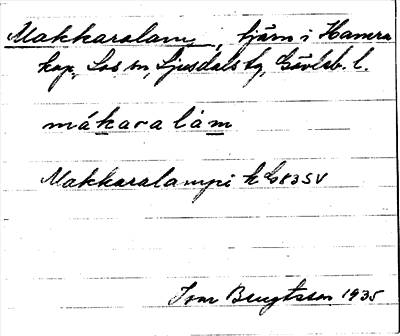 Makkaralam, tjärn i Hamra
kap, Los sn, Ljusdals tg, Gävleb. l.
mákaralám
Makkaralampi k G 83 SV
Ivar Bengtsson 1935